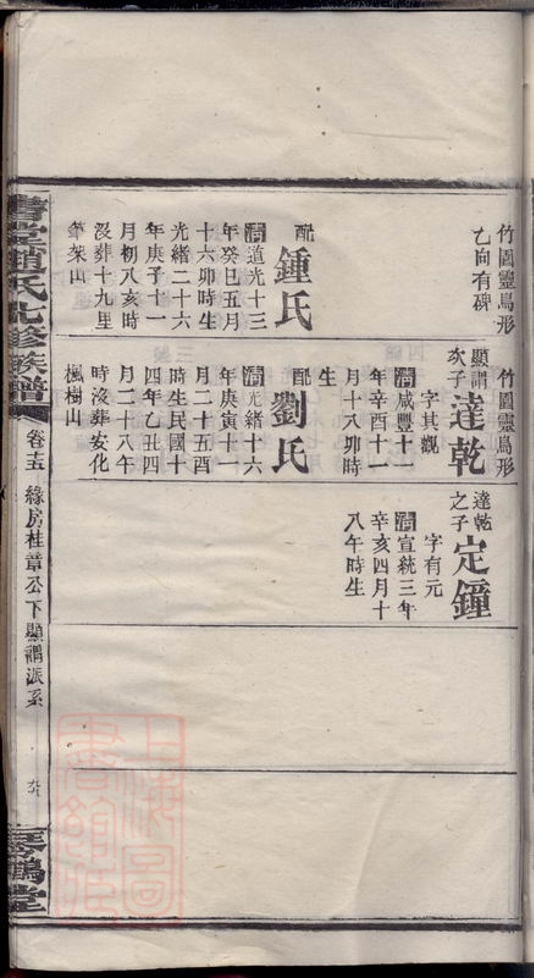 竹園靈鳥形
乙向有碑
配
鍾氏
清道光十三
年癸巳五月
十六卯時生
光緒二十六
年庚子十一
月初八亥時
沒葬十九里
筆架山
竹園靈鳥形
顯謂
次子
達乾
字其觀
清咸豐十一
年辛酉十一
月十八卯時
生
配
劉氏
清光緒十六
年庚寅十一
月二十五酉
時生民國十
四年乙丑四
月二十八午
時沒葬安化
楓樹山
達乾
之子
定鐘
字有元
清宣統三年
辛亥四月十
八午時生
書堂趙氏七修族譜
卷十五
緣房桂章公下顯謂派系
琴鶴堂
上海圖
書館藏